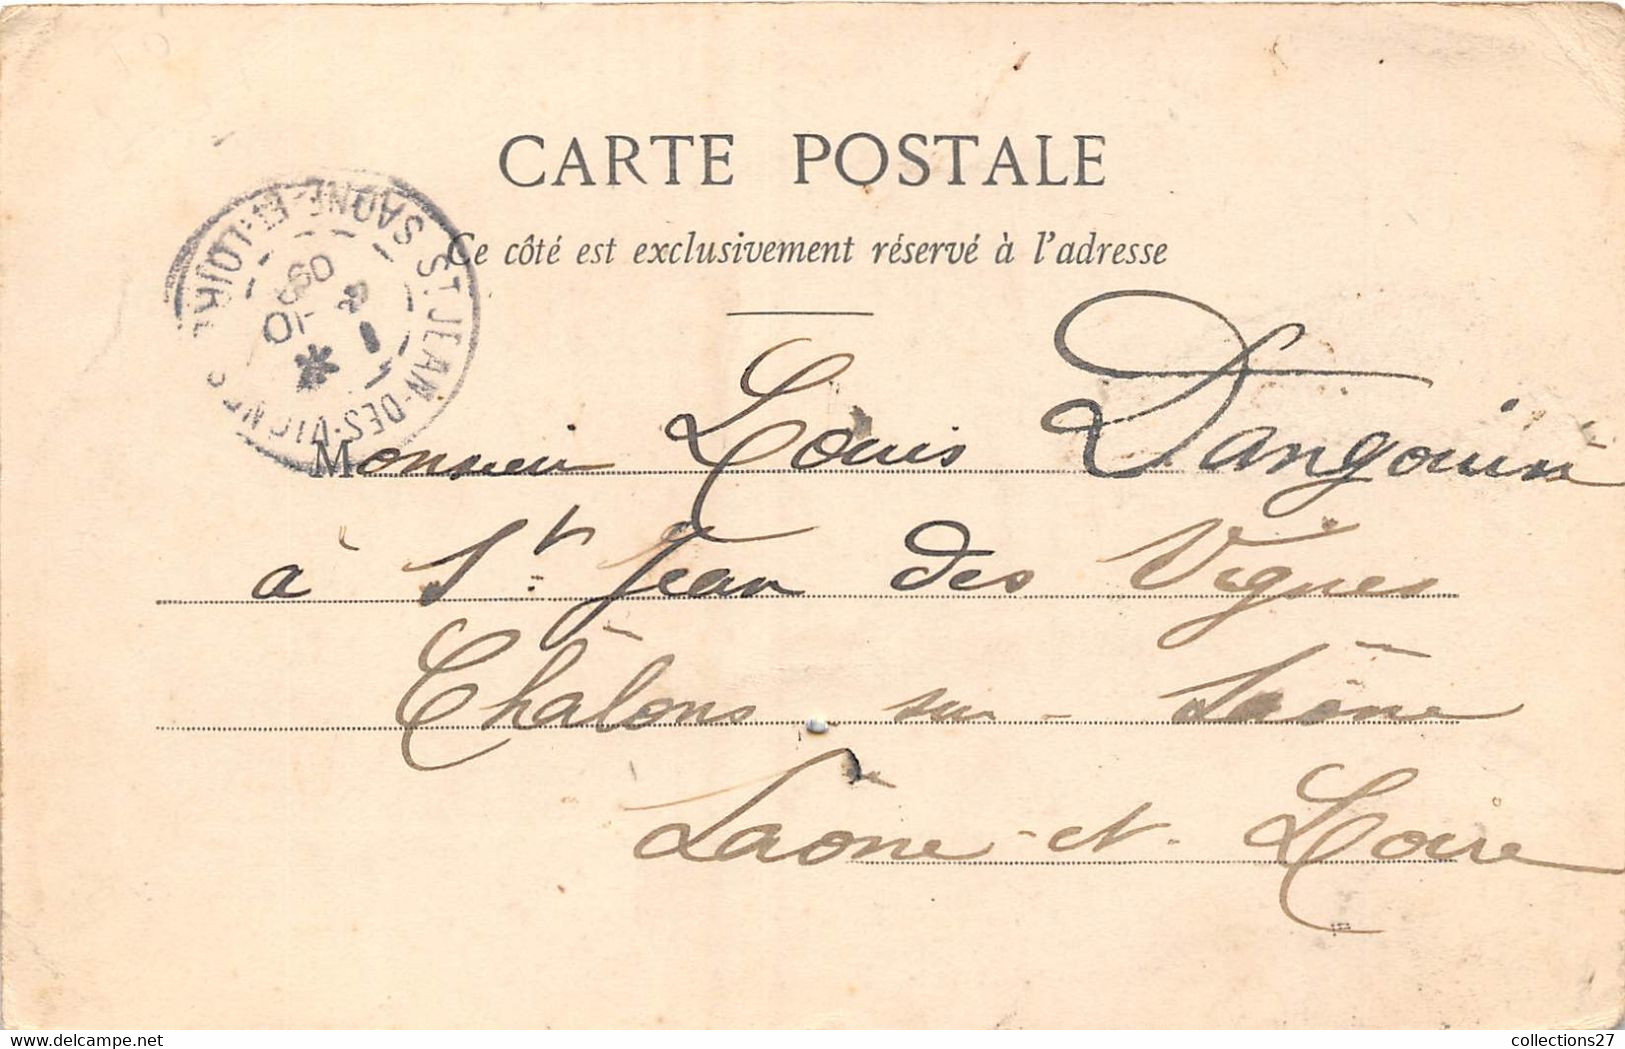 CARTE POSTALE
Ce côté est exclusivement réservé à l'adresse
ST JEAN-DES-VIGNES SAONE-ET-LOIRE
Monsieur Louis Dangouin
à St. Jean des Vignes
Châlons sur - Saône
Saône - et - Loire
delcampe.net
collections27